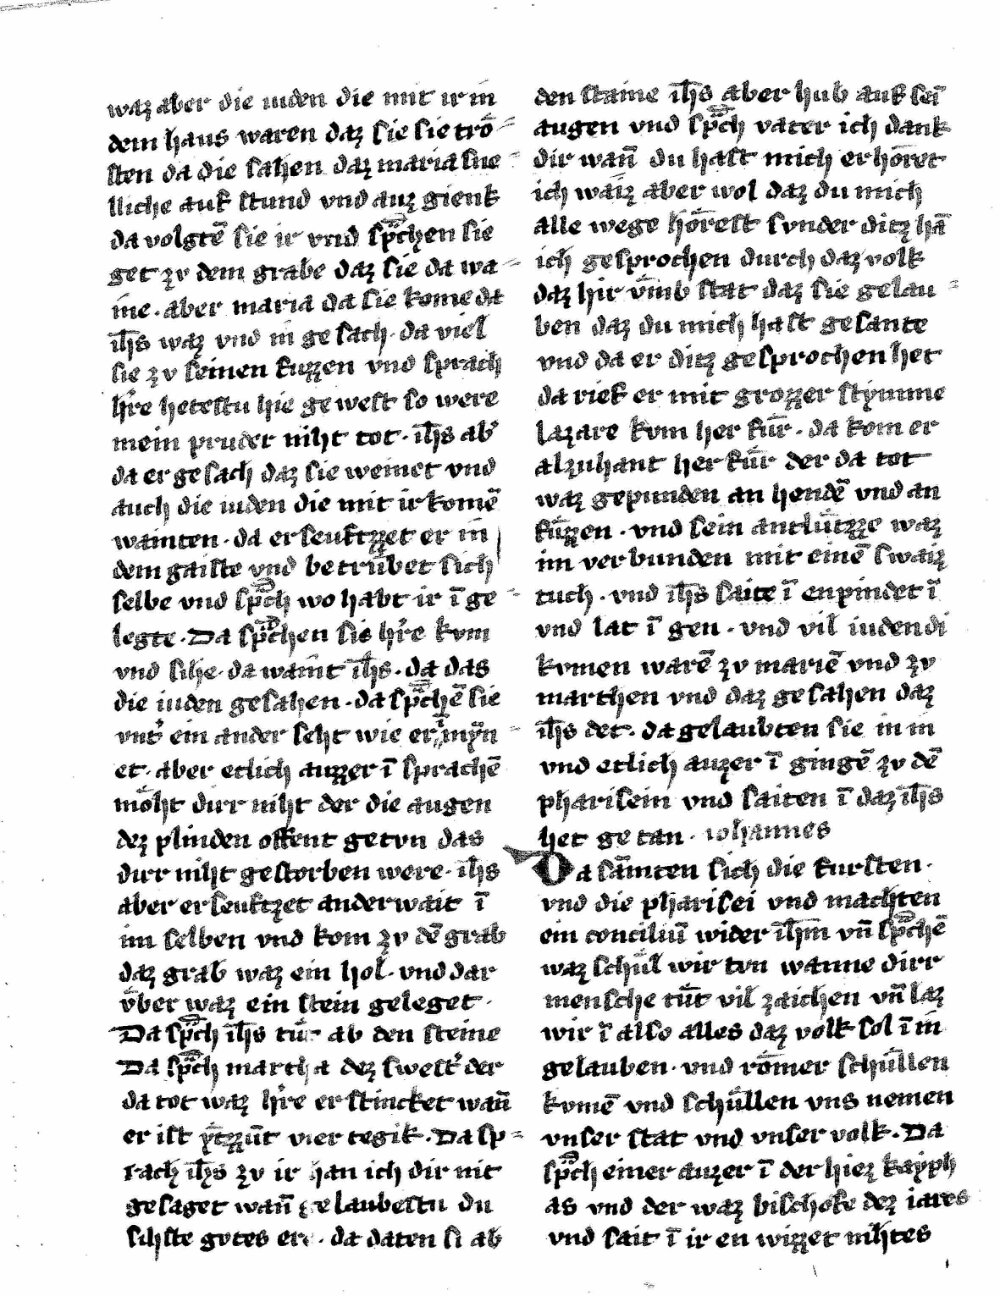 waz aber die iuden die mit ir in
dem haus waren daz sie sie trö⸗
sten da die sahen daz maria sne⸗
lliche auf stund vnd auz gienk
da volgtē sie ir vnd sp̄chen sie
get zv dem grabe daz sie da wa⸗
ine. aber maria da sie kome da
ih̄s waz vnd in gesach. da viel
sie zv seinen fuzzen vnd sprach
hr̄e hetestu hie gewest so were
mein pruder niht tot. ih̄s ab'
da er gesach daz sie weinet vnd
auch die iuden die mit ir komē
wainten. da er seuftzzet er in
dem gaiste vnd betrubet sich
selbe vnd sp̄ch wo habt ir ī ge⸗
legte. Da sp̄chen sie hr̄e kvm
vnd sihe. da waint ih̄s. da das
die iuden gesahen. da sp̄chē sie
vnt' ein ander seht wie er in myn⸗
et. aber etlich auzzer ī sprachē
möht dirr niht der die augen
dez plinden offent getvn das
dirr niht gestorben were. ih̄s
aber erseuftzet anderwait ī
im selben vnd kom zv dē grab
daz grab waz ein hol. vnd dar
v̈ber waz ein stein geleget.
Da sp̄ch ih̄s tü ab den steine
Da sp̄ch martha dez swest' der
da tot waz hr̄e er stincket wan̄
er ist ytzzūt vier tegik. Da sp⸗
rach ih̄s zv ir han ich dir nit
gesaget wan̄ gelaubestu du
sihste gotes ere. da daten si ab
den staine ih̄s aber hub auf sei
augen vnd sp̄ch vater ich dank
dir wan̄ du hast mich erhöret
ich waiz aber wol daz du mich
alle wege hörest svnder ditz hā
ich gesprochen durch daz volk
daz hir v̈mb stat daz sie gelau⸗
ben daz du mich hast gesante
vnd da er ditz gesprochen het
da rief er mit grozzer stymme
lazare kvm her für. da kom er
alzuhant her für der da tot
waz gepunden an hendē vnd an
füzzen. vnd sein antlützze waz
im verbunden mit einē swaiz
tuch. vnd ih̄s saite ī enpindet ī
vnd lat ī gen. vnd vil iuden di
kvmen warē zv mariē vnd zv
marthen vnd daz gesahen daz
ih̄s det. da gelaubten sie in in
vnd etlich auzer ī gingē zv dē
pharisein vnd saiten ī daz ih̄s
het getan. iohannes
Da sāmten sich die fursten.
vnd die pharisei vnd machten
ein conciliū wider ih̄m vn̄ sp̄chē
waz schüll wir tvn wanne dirr
mensche tüt vil zaichen vn̄ laz
wir ī also alles daz volk sol ī in
gelauben. vnd römer schüllen
kvmē vnd schüllen vns nemen
vnser stat vnd vnser volk. Da
sp̄ch einer auzer ī der hiez kayph
as vnd der waz bischofe dez iares
vnd sait ī ir en wizzet nihtes